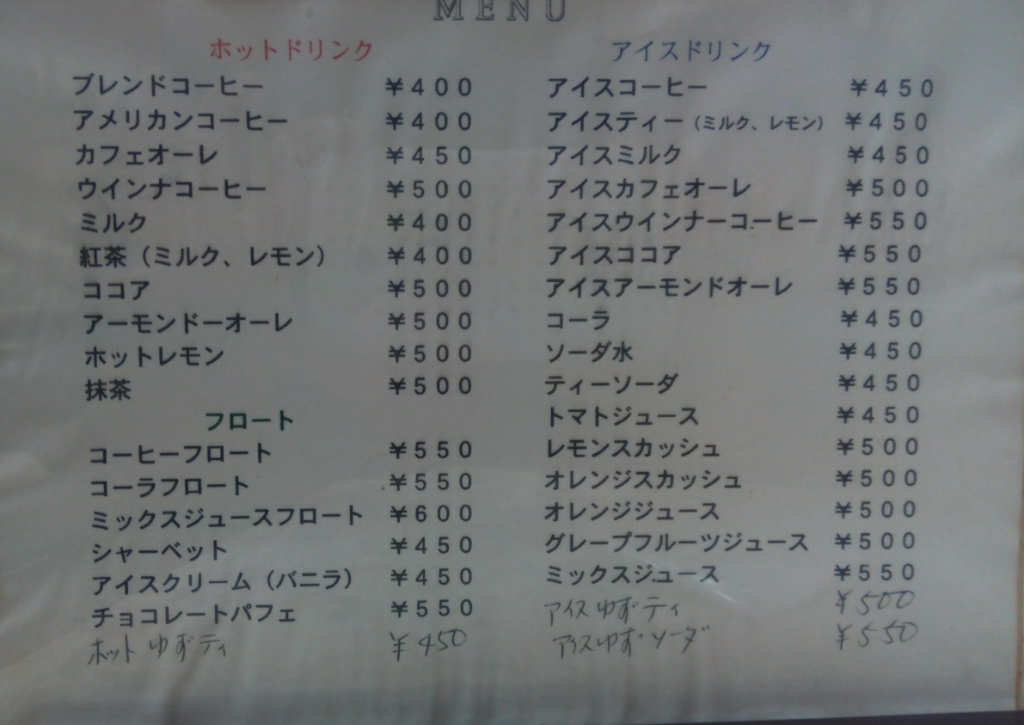 MENU
ホットドリンク
ブレンドコーヒー ￥400
アメリカンコーヒー ￥400
カフェオーレ ￥450
ウインナコーヒー ￥500
ミルク ￥400
紅茶（ミルク、レモン） ￥400
ココア ￥500
アーモンドーオーレ ￥500
ホットレモン ￥500
抹茶 ￥500
フロート
コーヒーフロート ￥550
コーラフロート ￥550
ミックスジュースフロート ￥600
シャーベット ￥450
アイスクリーム（バニラ） ￥450
チョコレートパフェ ￥550
ホットゆずティ ￥450
アイスドリンク
アイスコーヒー ￥450
アイスティー（ミルク、レモン） ￥450
アイスミルク ￥450
アイスカフェオーレ ￥500
アイスウインナーコーヒー ￥550
アイスココア ￥550
アイスアーモンドオーレ ￥550
コーラ ￥450
ソーダ水 ￥450
ティーソーダ ￥450
トマトジュース ￥450
レモンスカッシュ ￥500
オレンジスカッシュ ￥500
オレンジジュース ￥500
グレープフルーツジュース ￥500
ミックスジュース ￥550
アイスゆずティ ￥500
アイスゆずソーダ ￥550